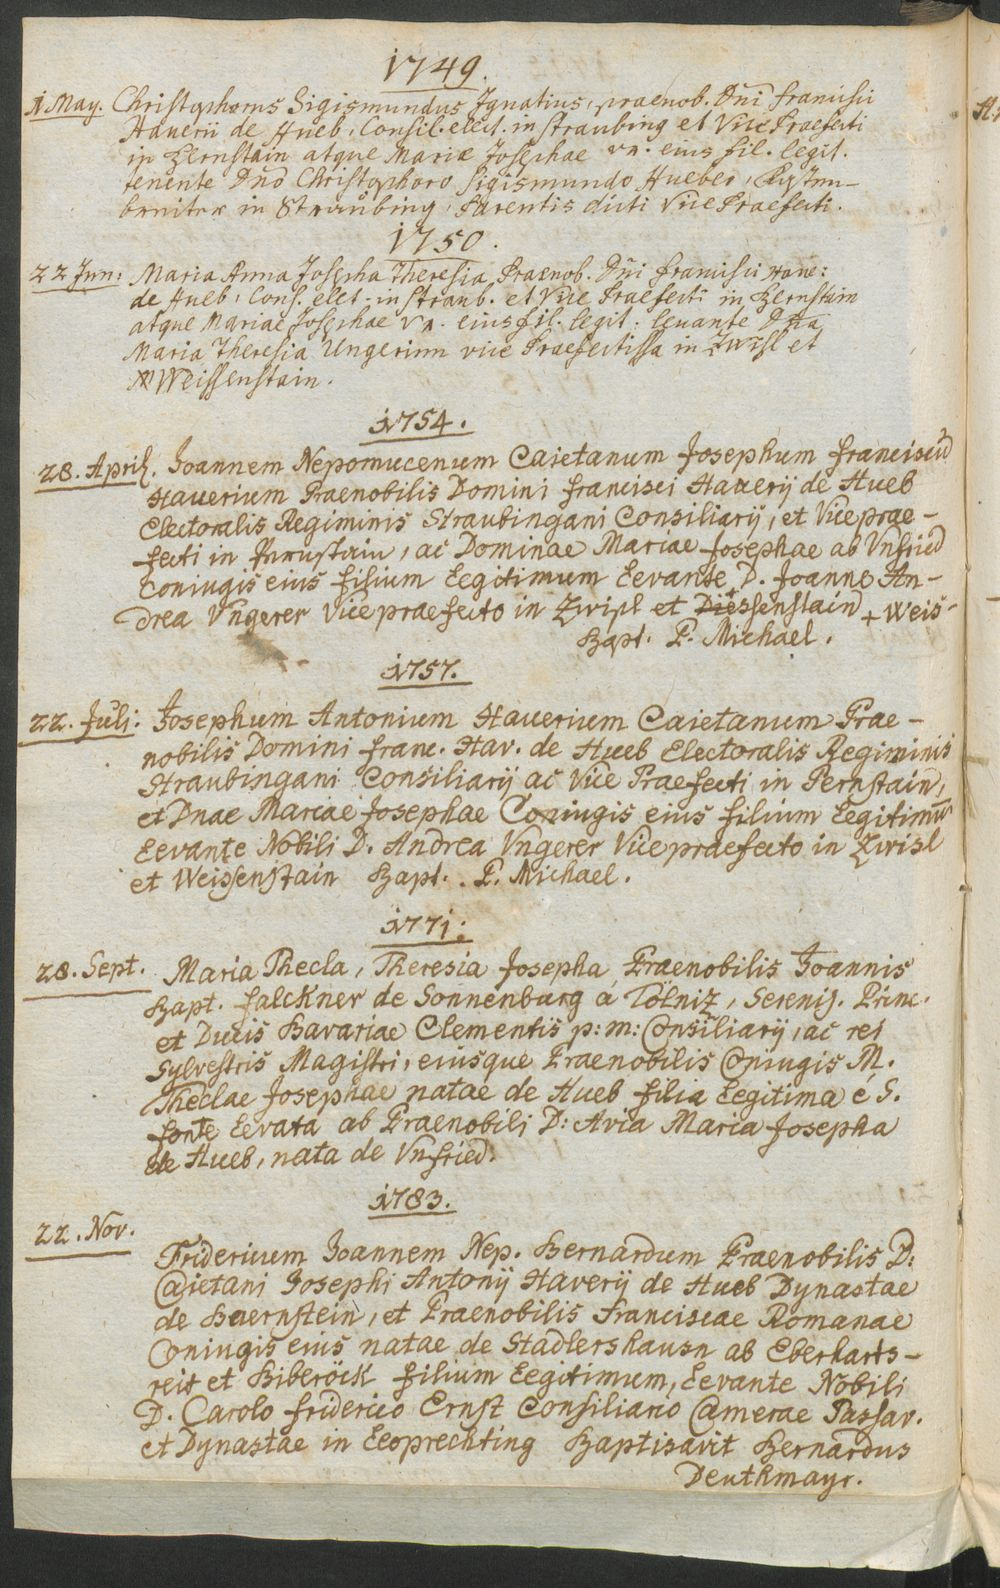 1749.
1 May. Christophorus Sigismundus Ignatius, praenob. Dni Francisci
Xauerii de Hueb, Consil. elect. in Straubing et Vice Praefecti
in Bernstain atque Mariæ Josephae ux. eius fil. legit.
tenente Dno Christophoro Sigismundo Hueber,
in Straubing, Parentis dicti Vice Praefecti.
1750.
22 Jun: Maria Anna Josepha Theresia, Praenob. Dni Francisci Xave:
de Hueb, Cons. elect. in Straub. et Vice Praefecti in Bernstain
atque Mariae Josephae ux. eius fil. legit: leuante Dna
Maria Theresia Ungerinn vice Praefectissa in Zwisl et
Weissenstain.
1754.
28. April. Joannem Nepomucenum Caietanum Josephum Franciscū
Xauerium Praenobilis Domini Francisci Xauerij de Hueb
Electoralis Regiminis Straubingani Consiliarij, et Vice prae-
fecti in Pernstain, ac Dominae Mariae Josephae ab Unfried
Coniugis eius Filium Legitimum Levante D. Joanne An-
drea Ungerer Vice praefecto in Zwisl et Diessenstain + Weis-
Bapt. P. Michael.
1757.
22. Juli: Josephum Antonium Xauerium Caietanum Prae-
nobilis Domini Franc. Xav. de Hueb Electoralis Regiminis
Straubingani Consiliarij ac Vice Praefecti in Pernstain,
et Dnae Mariae Josephae Coniugis eius Filium Legitimū
Levante Nobili D. Andrea Vngerer Vice praefecto in Zwisl
et Weissenstain Bapt. P. Michael.
1771.
28. Sept. Maria Thecla, Theresia Josepha Praenobilis Joannis
Bapt. Falckner de Sonnenburg á Tölniz, Serenis. Princ.
et Ducis Bavariae Clementis p: m: Consiliarij, ac rei
Sylvestris Magistri, eiusque Praenobilis Coniugis M.
Theclae Josephae natae de Hueb filia Legitima é S.
fonte Levata ab Praenobili D: Avia Maria Josepha
de Hueb, nata de Vnfried.
1783.
22. Nov.
Fridericum Joannem Nep. Bernardum Praenobilis D:
Caietani Josephi Antonij Xaverij de Hueb Dynastae
de Baernstein, et Praenobilis Franciscae Romanae
Coniugis eius natae de Stadlershausn ab Eberharts-
reit et Biberöck Filium Legitimum, Levante Nobili
D. Carolo Friderico Ernst Consiliario Camerae Passav.
et Dynastae in Leoprechting Baptisavit Bernardus
Deuthmayr.